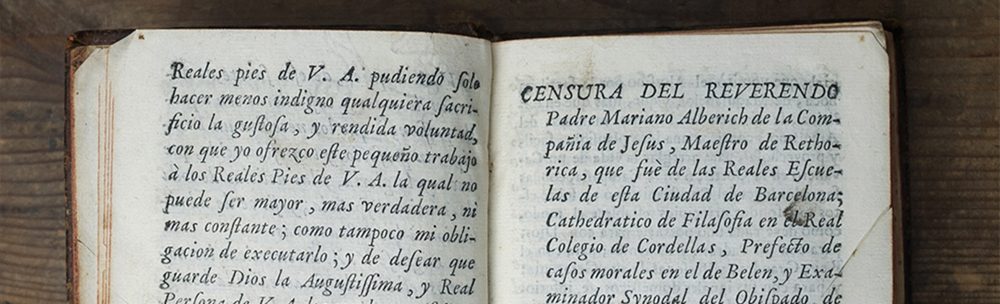 Reales pies de V. A. pudiendo ſolo
hacer menos indigno qualquiera sacri-
ficio la guſtosa, y rendida voluntad,
con que yo ofrezco eſte pequeño trabajo
à los Reales Pies de V. A. la qual no
puede ſer mayor, mas verdadera, ni
mas conſtante; como tampoco mi obli-
gacion de executarlo; y de deſear que
guarde Dios la Auguſtiſſima, y Real
Persona de V. A.
CENSURA DEL REVERENDO
Padre Mariano Alberich de la Com-
pañia de Jeſus, Maeſtro de Retho-
rica, que fuè de las Reales Eſcue-
las de eſta Ciudad de Barcelona;
Cathedratico de Filaſofia en el Real
Colegio de Cordellas, Prefecto de
caſos morales en el de Belen, y Exa-
minador Synodal del Obiſpado de